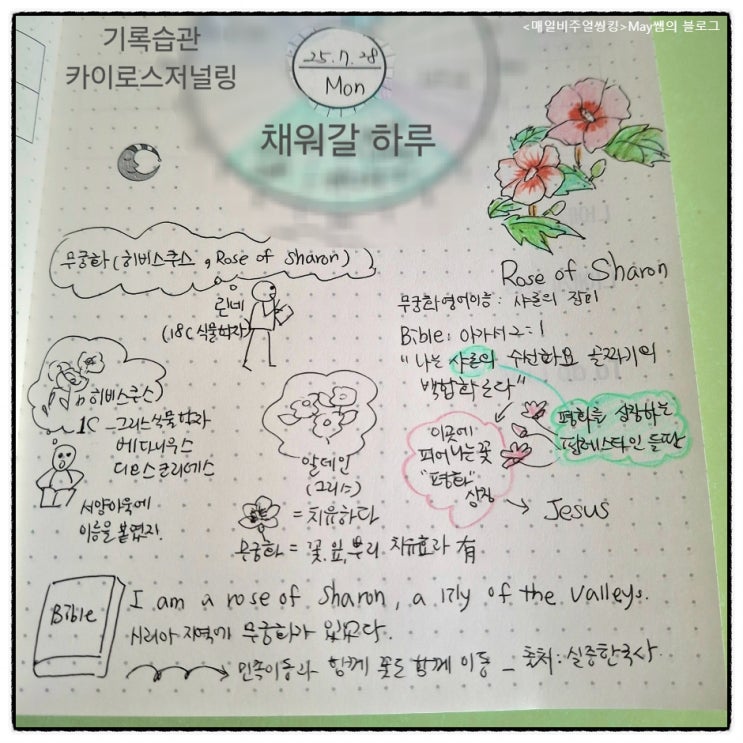 <매일비주얼씽킹>May쌤의 블로그
기록습관
카이로스저널링
25.7.28
Mon
채워갈 하루
무궁화(히비스쿠스, Rose of Sharon)
린네
(18C 식물학자)
히비스쿠스)
1C _그리스식물학자
디오스코리데스
서양아욱에
이름을 붙였지.
알데인
(그리스)
= 치유하다
무궁화 = 꽃.잎.뿌리 치유효과 有
Rose of Sharon
무궁화영어이름 : 샤론의 장미
Bible: 아가서 2:1
"나는 샤론의 수선화요 골짜기의
백합화로다"
평화를 상징하는
팔레스타인 들판
이곳에
피어나는 꽃
"평화"
상징
→ Jesus
Bible
I am a rose of Sharon, a lily of the valleys.
시리아 지역에 무궁화가 있었다.
민족이동과 함께 꽃도 함께 이동 _ 출처:실증한국사.